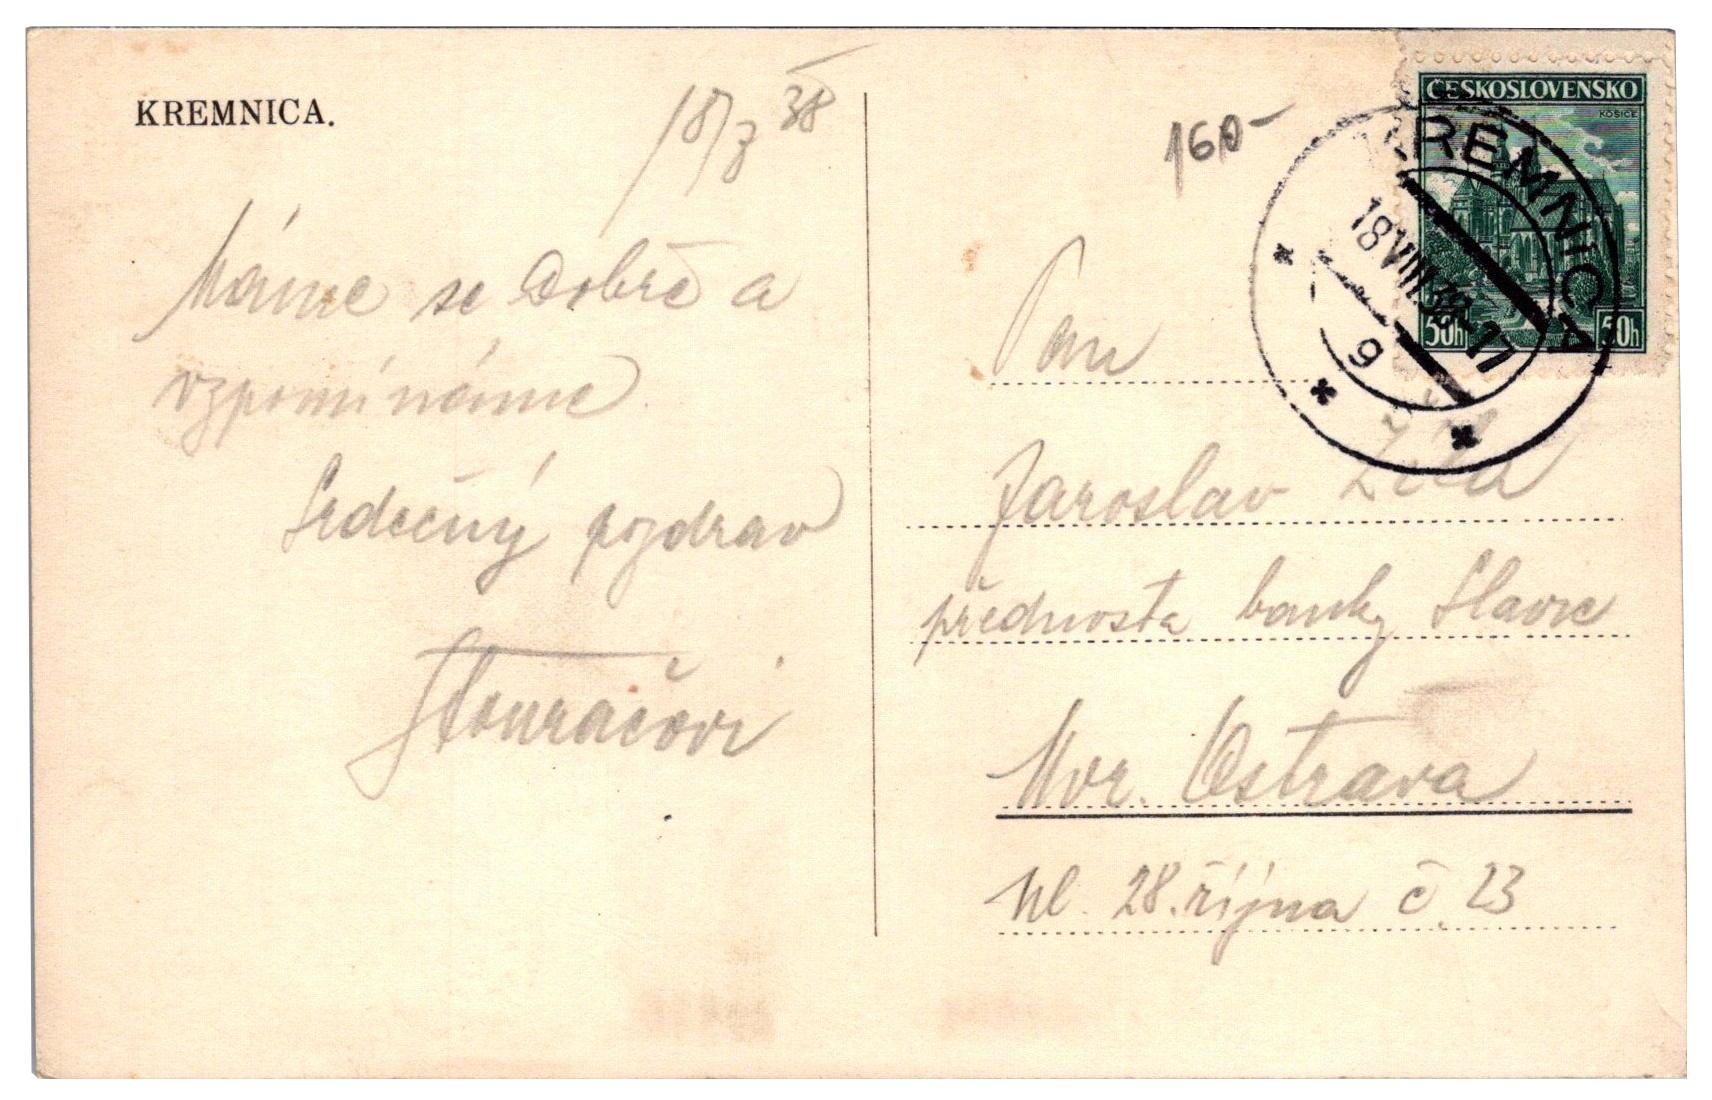 KREMNICA.
18/8 38
Máme se dobře a
vzpomínáme
Srdečný pozdrav
Stouračovi
160-
ČESKOSLOVENSKO
KOŠICE
50h 50h
KREMNICA
18.VIII.38-17
9
Pan
Jaroslav Žíla
přednosta banky Slavie
Mor. Ostrava
Ul. 28. října č. 23